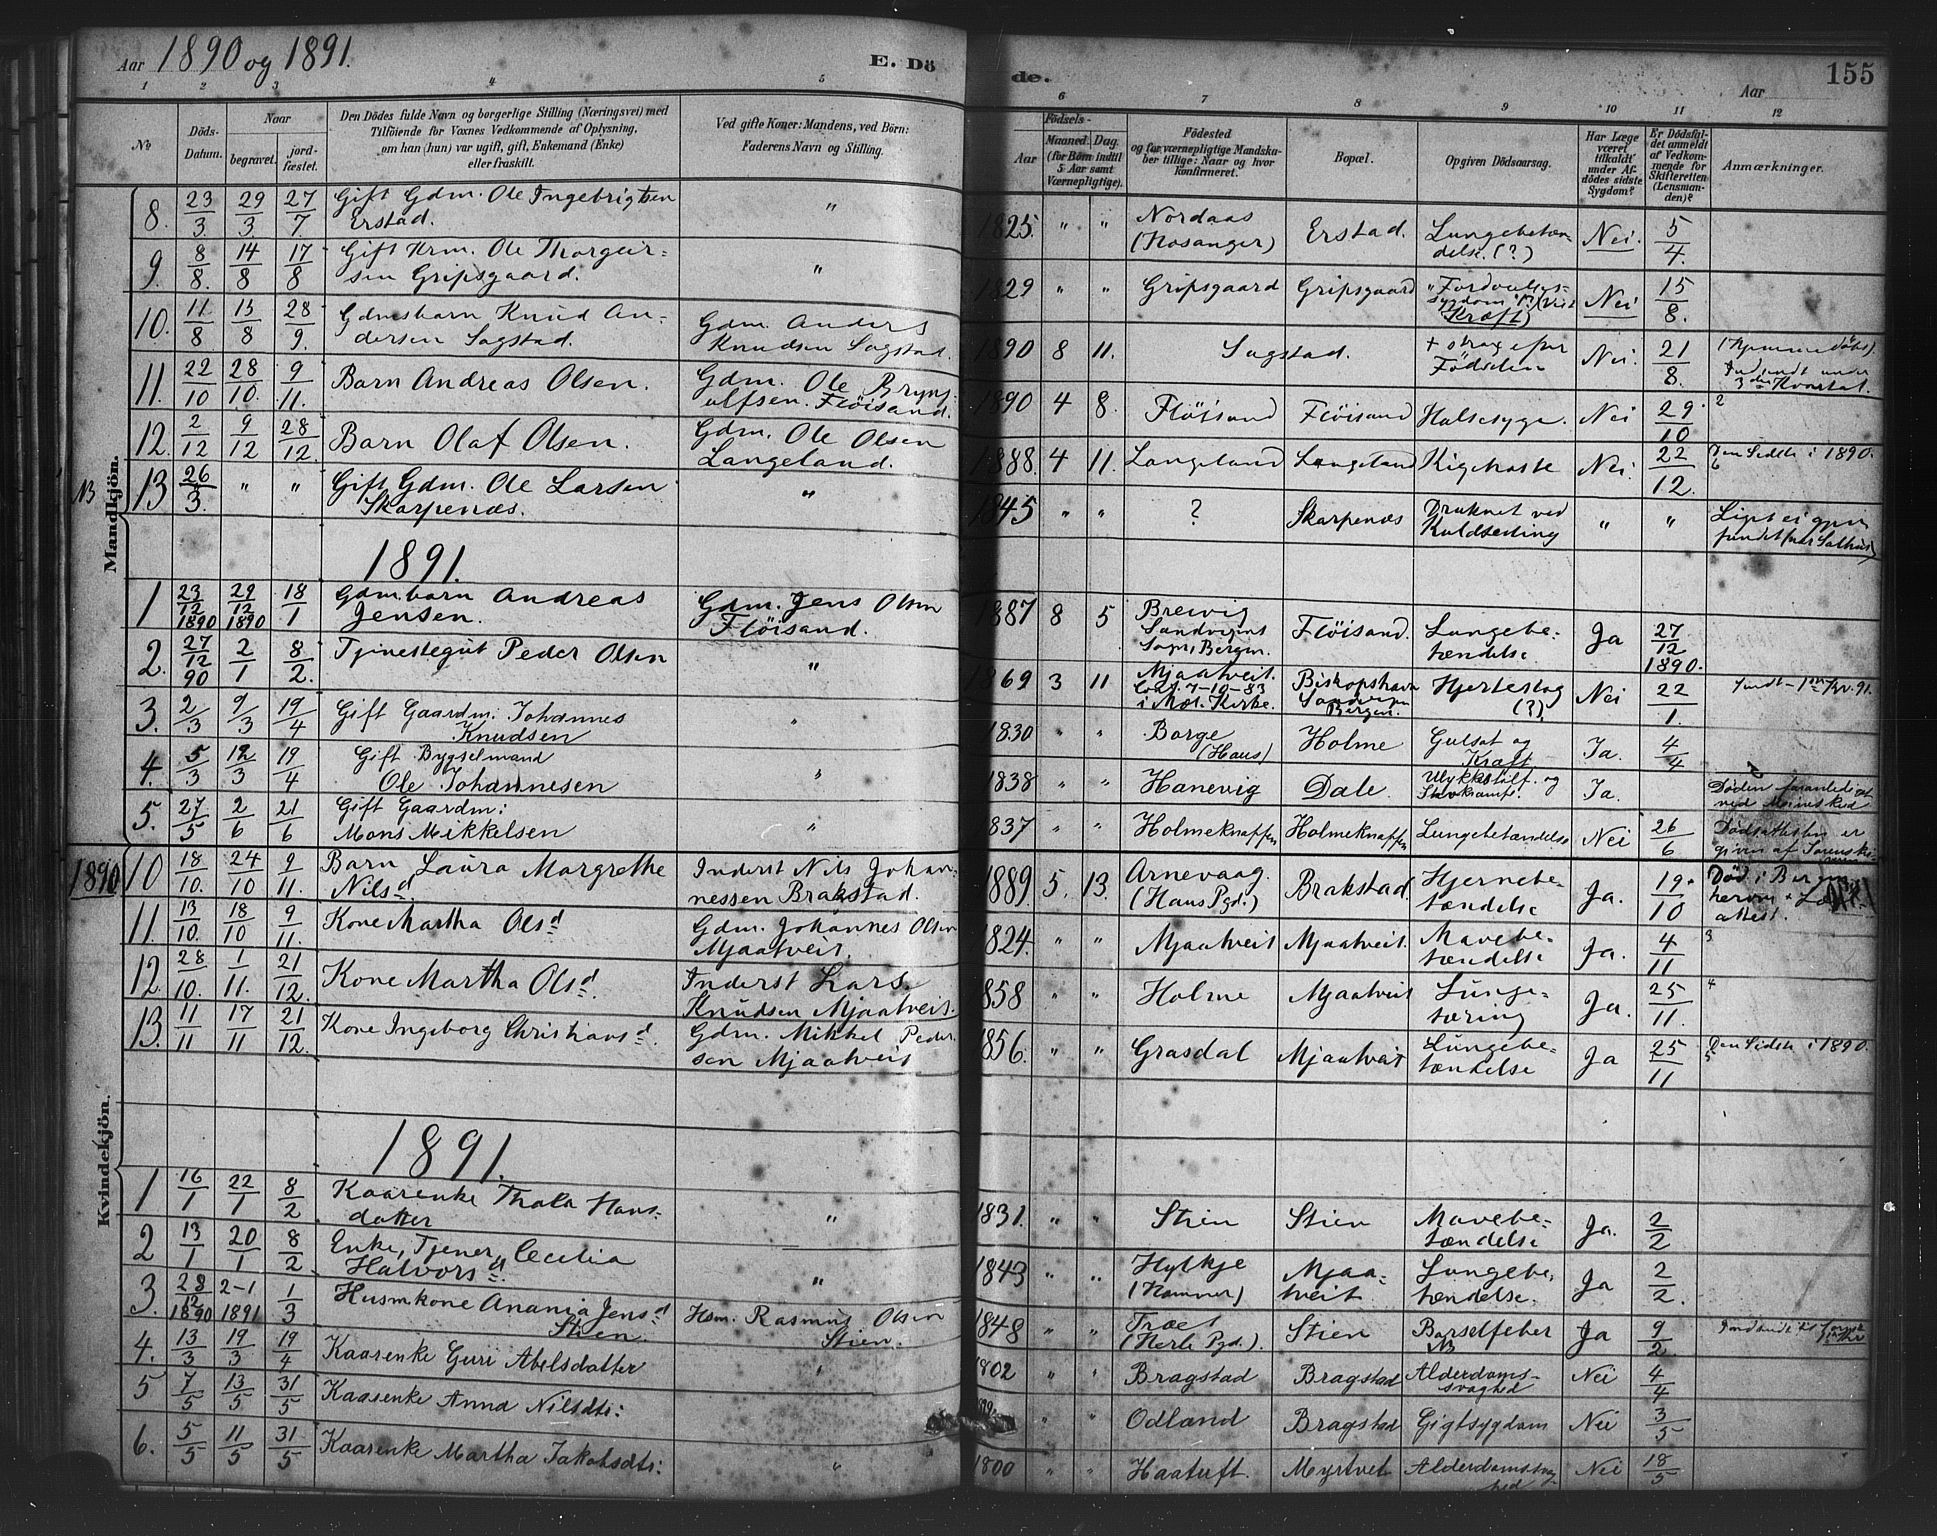 Aar 1890 og 1891.
E. Dö
de.
Aar
155
1 2 3 4 5 6 7 8 9 10 11 12
No
Döds-Datum.
Naar
begravet.
jord-fæstet.
Den Dödes fulde Navn og borgerlige Stilling (Næringsvei) med
Tilföiende for Voxnes Vedkommende af Oplysning,
om han (hun) var ugift, gift, Enkemand (Enke)
eller fraskilt.
Ved gifte Koner: Mandens, ved Börn:
Faderens Navn og Stilling.
Födsels-
Aar
Maaned. Dag.
(for Börn indtil
5 Aar samt
Værnepligtige).
Födested
og for værnepligtige Mandska-
ber tillige: Naar og hvor
konfirmeret.
Bopæl.
Opgiven Dödsaarsag.
Har Læge
været
tilkaldt
under Af-
dödes sidste
Sygdom?
Er Dödsfal-
det anmeldt
af Vedkom-
mende for
Skifteretten
(Lensman-
den)?
Anmærkninger.
Mandkjön.
8. 23/3. 29/3 27/7 Gift Gdm. Ole Ingebrigtsen Erstad. " 1825. " " Nordaas (Hosanger) Erstad. Lungebetæn-delse. (?) Nei. 5/4.
9. 8/8. 14/8 17/8 Gift Krm. Ole Thorgeir-sen Gripsgaard. " 1829 " " Gripsgaard Gripsgaard Sygdom Kræft) Nei 15/8.
10. 11/8 15/8 28/9. Gdmsbarn Knud An-dersen Sagstad. Gdm. Anders Knudsen Sagstad. 1890 8 11. Sagstad. + strax efter Födselen Nei. 21/8. (Hjemmedöbt). Indsendt under 3die Kvartal.
11. 22/10 28/10. 9/11. Barn Andreas Olsen. Gdm. Ole Bryng-ulfsen. Flöisand. 1890 4 8. Flöisand Flöisand Halsesyge. Nei 29/10 2
12. 2/12 9/12 28/12. Barn Olaf Olsen. Gdm. Ole Olsen Langeland. 1888. 4 11. Langeland Langeland Kighoste Nei. 22/12. Den Sidste i 1890. 6
NB 13 26/3. " " Gift Gdm. Ole Larsen Skarpenæs. " 1845 " " ? Skarpenæs Druknet ved Kuldseiling " " Liget ei gjen-fundet
1891.
1 23/12 1890 29/12 1890 18/1 Gdm.barn Andreas Jensen. Gdm. Jens Olsen Flöisand. 1887 8 5 Breivig Sandvigens Sogn, Bergen. Flöisand. Lungebe-tændelse Ja 27/12 1890.
2. 27/12 90 2/1 8/2. Tjenestegut Peder Olsen " 1869 3 11 Mjaatveit. Conf. 7-10-83 i Mel. Kirke. Biskopshavn Sandvigen Bergen. Hjerteslag (?) Nei 22/1.
3. 2/3 9/3 19/4 Gift Gaardm. Johannes Knudsen " 1830 " " Borge (Haus) Holme Gulsot og Kræft Ja. 4/4
4. 5/3 12/3 19/4 Gift Bygselmand Ole Johannesen " 1838 " " Hanevig Dale. Ulykkestilf. og Ja.
5. 27/5 2/6 21/6 Gift Gaardm: Mons Mikkelsen " 1837 " " Holmeknappen Holmeknappen Lungebetændelse Nei 26/6 Dödsattesten er given af
Kvindekjön.
1890 10 18/10. 24/10 9/11. Barn Laura Margrethe Nilsd Inderst Nils Johan-nessen Brakstad. 1889 5. 13. Arnevaag. (Haus Pgd.) Brakstad. Hjernebe-tændelse Ja. 19/10 Död i Bergen
11. 13/10. 18/10 9/11. Kone Martha Olsd Gdm. Johannes Olsen Mjaatveit. 1824. " " Mjaatveit Mjaatveit. Mavebe-tændelse Ja. 4/11 3
12. 28/10. 1/11. 21/12. Kone Martha Olsd. Inderst Lars Knudsen Mjaatveit. 1858 " " Holme Mjaatveit Lunge-tæring Ja. 25/11. 4
13. 11/11 17/11 21/12. Kone Ingeborg Christiansd. Gdm. Mikkel Peder-sen Mjaatveit 1856. " " Grasdal Mjaatveit Lungebe-tændelse Ja 25/11 Den Sidste i 1890. 5
1891.
1 16/1 22/1 8/2 Kaarenke Thala Hans-datter " 1831. " " Stien Stien Mavebe-tændelse Ja. 2/2
2 13/1 20/1 8/2 Enke, Tjener, Cecilia Halvorsd " 1843 " " Hylkje (Hammer) Mjaa-tveit. Lungebe-tændelse. Ja 2/2.
3. 28/12 1890 2-1 1891 1/3 Husmkone Anania Jensd Stien. Hsm. Rasmus Olsen Stien. 1848 " " Træet (Herlö Pgd.). Stien Barselfeber NB Ja 9/2
4. 13/3 19/3 19/4 Kaarenke Guri Abelsdatter " 1802 " " Bragstad Bragstad Alderdoms-svaghed Nei 4/4
5 7/5 13/5 31/5 Kaarenke Anna Nilsdtr: " " Odland Bragstad Gigtsygdom Nei 3/5
6. 5/5 11/5 31/5 Kaarenke Martha Jakobsdtr: " 1800 " " Haatuft. Myrtvet Alderdomssvag-hed Nei 18/5